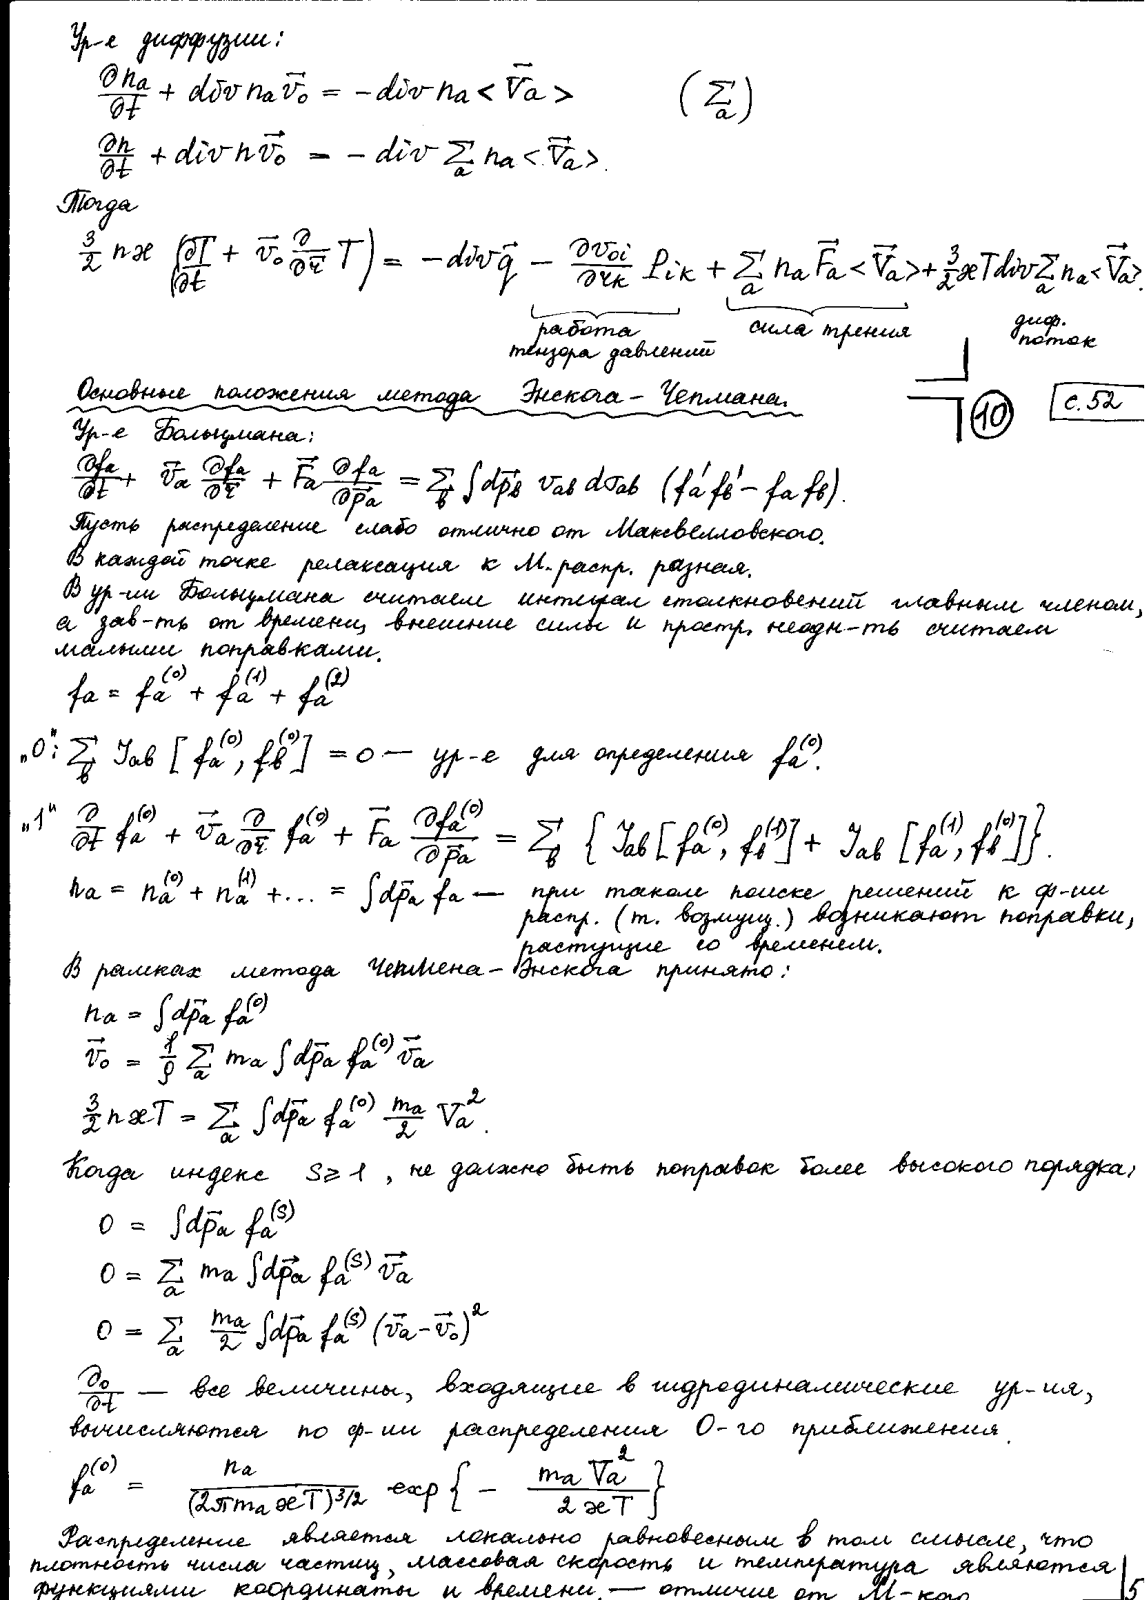 Ур-е диффузии:
∂nₐ/∂t + div nₐ v⃗₀ = - div nₐ < V⃗ₐ >   (Σₐ)
∂n/∂t + div n v⃗₀ = - div Σₐ nₐ < V⃗ₐ >.
Тогда
3/2 nϰ (∂T/∂t + v⃗₀ ∂/∂r⃗ T) = - div q⃗ - ∂v₀ᵢ/∂rₖ Pᵢₖ + Σₐ nₐ F⃗ₐ < V⃗ₐ > + 3/2 ϰT div Σₐ nₐ < V⃗ₐ >.
работа тензора давлений
сила трения
диф. поток
Основные положения метода Энскога - Чепмана.
10
с. 52
Ур-е Больцмана:
∂fₐ/∂t + v⃗ₐ ∂fₐ/∂r⃗ + F⃗ₐ ∂fₐ/∂p⃗ₐ = Σ_в ∫dp⃗_в v_ав dσ_ав (fₐ' f_в' - fₐ f_в).
Пусть распределение слабо отлично от Максвелловского.
В каждой точке релаксация к М-распр. разная.
В ур-ии Больцмана считаем интеграл столкновений главным членом,
а зав-ть от времени, внешние силы и простр. неодн-ть считаем
малыми поправками.
fₐ = fₐ⁽⁰⁾ + fₐ⁽¹⁾ + fₐ⁽²⁾
„0": Σ_в J_ав [fₐ⁽⁰⁾, f_в⁽⁰⁾] = 0 — ур-е для определения fₐ⁽⁰⁾.
„1" ∂/∂t fₐ⁽⁰⁾ + v⃗ₐ ∂/∂r⃗ fₐ⁽⁰⁾ + F⃗ₐ ∂fₐ⁽⁰⁾/∂p⃗ₐ = Σ_в { J_ав [fₐ⁽⁰⁾, f_в⁽¹⁾] + J_ав [fₐ⁽¹⁾, f_в⁽⁰⁾] }.
nₐ = nₐ⁽⁰⁾ + nₐ⁽¹⁾ + ... = ∫dp⃗ₐ fₐ — при таком поиске решений к ф-ии
распр. (т. возмущ.) возникают поправки,
растущие со временем.
В рамках метода Чепмена - Энскога принято:
nₐ = ∫dp⃗ₐ fₐ⁽⁰⁾
v⃗₀ = 1/ρ Σₐ mₐ ∫dp⃗ₐ fₐ⁽⁰⁾ v⃗ₐ
3/2 nϰT = Σₐ ∫dp⃗ₐ fₐ⁽⁰⁾ mₐ/2 Vₐ².
Когда индекс S ≥ 1, не должно быть поправок более высокого порядка:
0 = ∫dp⃗ₐ fₐ⁽ˢ⁾
0 = Σₐ mₐ ∫dp⃗ₐ fₐ⁽ˢ⁾ v⃗ₐ
0 = Σₐ mₐ/2 ∫dp⃗ₐ fₐ⁽ˢ⁾ (v⃗ₐ - v⃗₀)²
∂₀/∂t — все величины, входящие в гидродинамические ур-ия,
вычисляются по ф-ии распределения 0-го приближения.
fₐ⁽⁰⁾ = nₐ/(2πmₐϰT)^3/2 exp{ - mₐVₐ²/2ϰT }
Распределение является локально равновесным в том смысле, что
плотность числа частиц, массовая скорость и температура являются
функциями координаты и времени. — отличие от М-кого
5